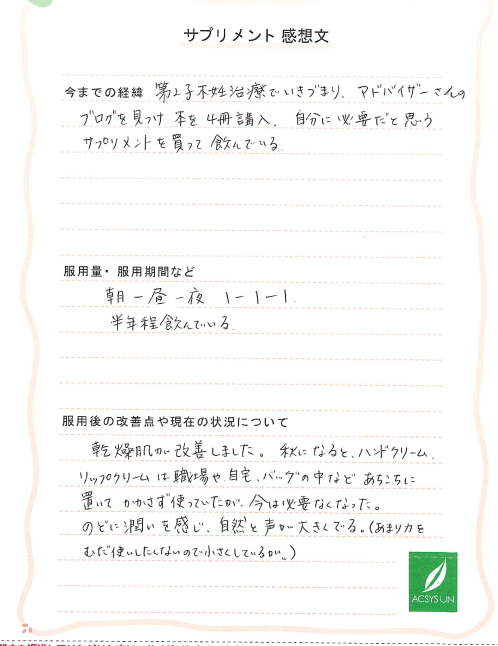 サプリメント 感想文
今までの経緯 第2子不妊治療でいきづまり、アドバイザーさんの
ブログを見つけ 本を4冊購入。自分に必要だと思う
サプリメントを買って飲んでいる。
服用量・服用期間など
朝－昼－夜 1－1－1.
半年程飲んでいる。
服用後の改善点や現在の状況について
乾燥肌が改善しました。秋になると、ハンドクリーム、
リップクリームは職場や、自宅、バッグの中など あちこちに
置いて かかさず使っていたが、今は必要なくなった。
のどに潤いを感じ、自然と声が大きくでる。(あまり力を
むだ使いしたくないので小さくしているが。)
ACSYSUN